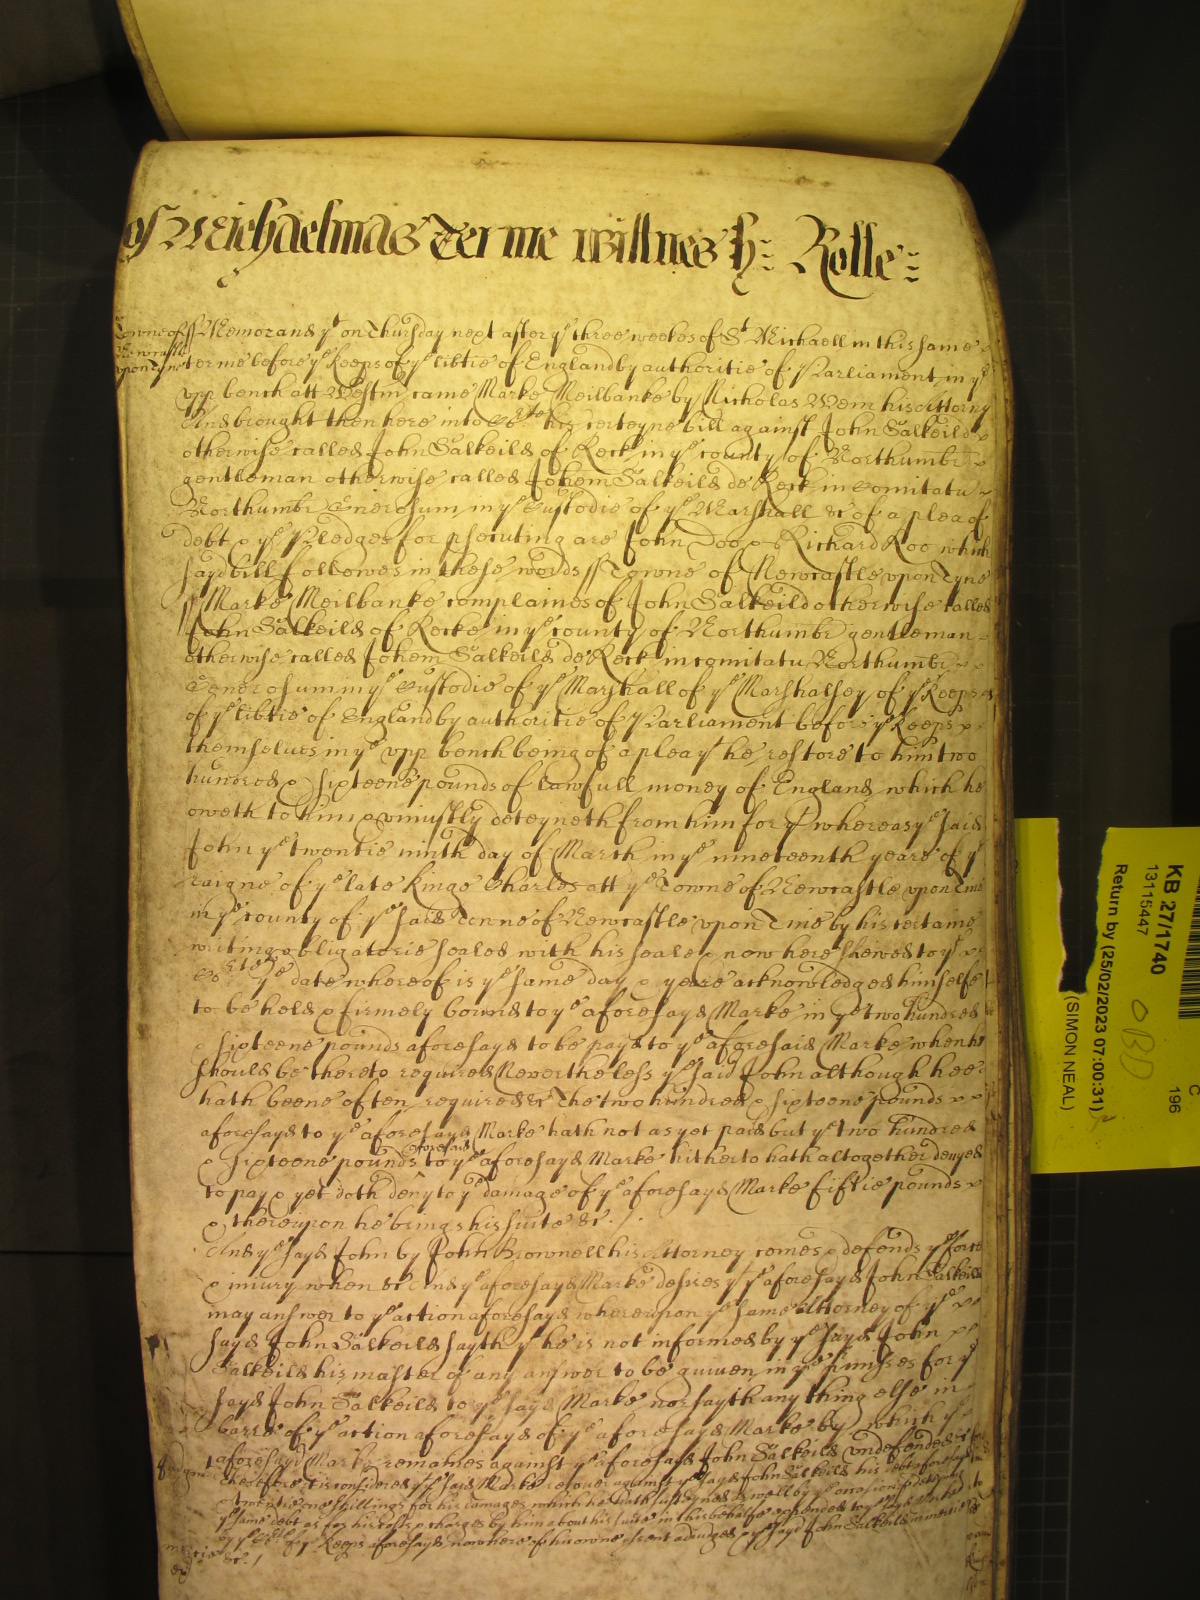 of Michaelmas Terme willnes h: Rolle:
Towne of
Newcastle
upon Tyne
ss Memorand yt on Thursday next after ye three weekes of St Michaell in this same
terme before ye Keeps of ye libtie of England by authoritie of Parliament in ye
upp bench att Westm came Marke Meilbanke by Nicholas Wem his Attorny
And brought then here into Corte his certeyne bill against John Salkeild
otherwise called John Salkeild of Rock in ye county of Northumbr
gentleman otherwise called Johem Salkeild de Rock in Comitatu
Northumbr Generosum in ye Custodie of ye Marshall &c of a plea of
debt & ye Pledges for psecuting are John Doo & Richard Roo which
sayd bill followes in these words ss Towne of Newcastle upon Tyne
ss Marke Meilbanke complaines of John Salkeild otherwise called
John Salkeild of Rocke in ye county of Northumbr gentleman
otherwise called Johem Salkeild de Rock in comitatu Northumbr
Generosum in ye Custodie of ye Marshall of ye Marshalsey of ye Keeps
of ye libtie of England by authoritie of Parliament before ye Keeps
themselves in ye upp bench being of a plea yt he restore to him two
hundred & sixteene pounds of lawfull money of England which he
oweth to him & uniustly deteyneth from him for yt whereas ye said
John ye twentie ninth day of March in ye nineteenth yeare of ye
raigne of ye late Kinge Charles att ye Towne of Newcastle upon Tine
in ye county of ye said Towne of Newcastle upon Tine by his certaine
writing obligatorie sealed with his seale & now here shewed to ye
Corte ye date whereof is ye same day & yeare acknowledged himselfe
to be held & firmely bound to ye aforesayd Marke in ye two hundred
& sixteene pounds aforesayd to be payd to ye aforesaid Marke when he
should be thereto required Neverthelesse ye said John although hee
hath beene often required &c The two hundred & sixteene pounds
aforesayd to ye aforesayd Marke hath not as yet paid but ye two hundred
& sixteene pounds aforesaid to ye aforesayd Marke hitherto hath altogether denyed
to pay & yet doth deny to ye damage of ye aforesayd Marke fiftie pounds
& thereupon he brings his suite &c. /.
And ye sayd John by John Brownell his Attorney comes & defends ye force
& iniury when &c And ye aforesayd Marke desires yt ye aforesayd John Salkeild
may answer to ye action aforesayd whereupon ye same Attorney of ye
sayd John Salkeild sayth yt he is not informed by ye sayd John
Salkeild his master of any answer to be giuuen in ye pimises for ye
sayd John Salkeild to ye sayd Marke nor sayth any thing else in
barre of ye action aforesayd of ye aforesayd Marke by which ye
aforesayd Marke remaines against ye aforesayd John Salkeild undefended &c
Therefore it is considered yt ye said Marke recover against ye sayd John Salkeild his debt aforesayd
& twentie one shillings for his damages which he hath susteyned as well by ye occasion of deteyning
ye same debt as for his costs & charges by him about his suite in this behalfe expended to ye sayd Marke
by ye Corte of ye Keeps aforesayd now here of his owne assent adiudged & ye sayd John Salkeild in mercie
&c. /
KB 27/1740
13115447
Return by (25/02/2023 07:00:31)
(SIMON NEAL)
C
196